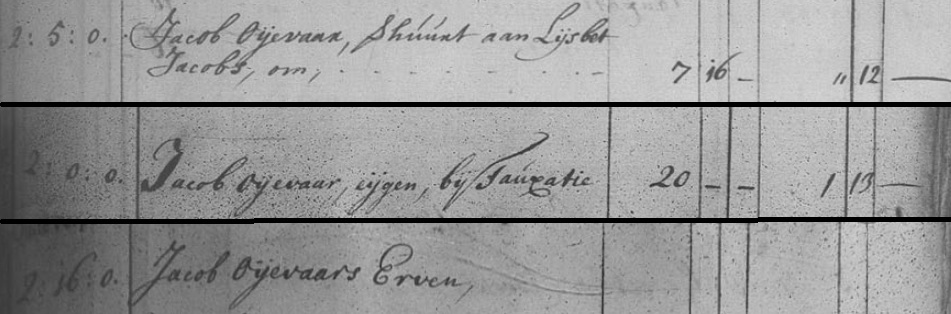 2: 5: 0. Jacob Oijevaar, Shúúrt aan Lijsbet
Jacobs, om, . - - - - - - 7 16 – " 12 —
2: 0: 0. Jacob Oijevaar, eijgen, bij Taúxatie 20 – – 1 13 —
2: 16: 0. Jacob Oijevaars Erven,